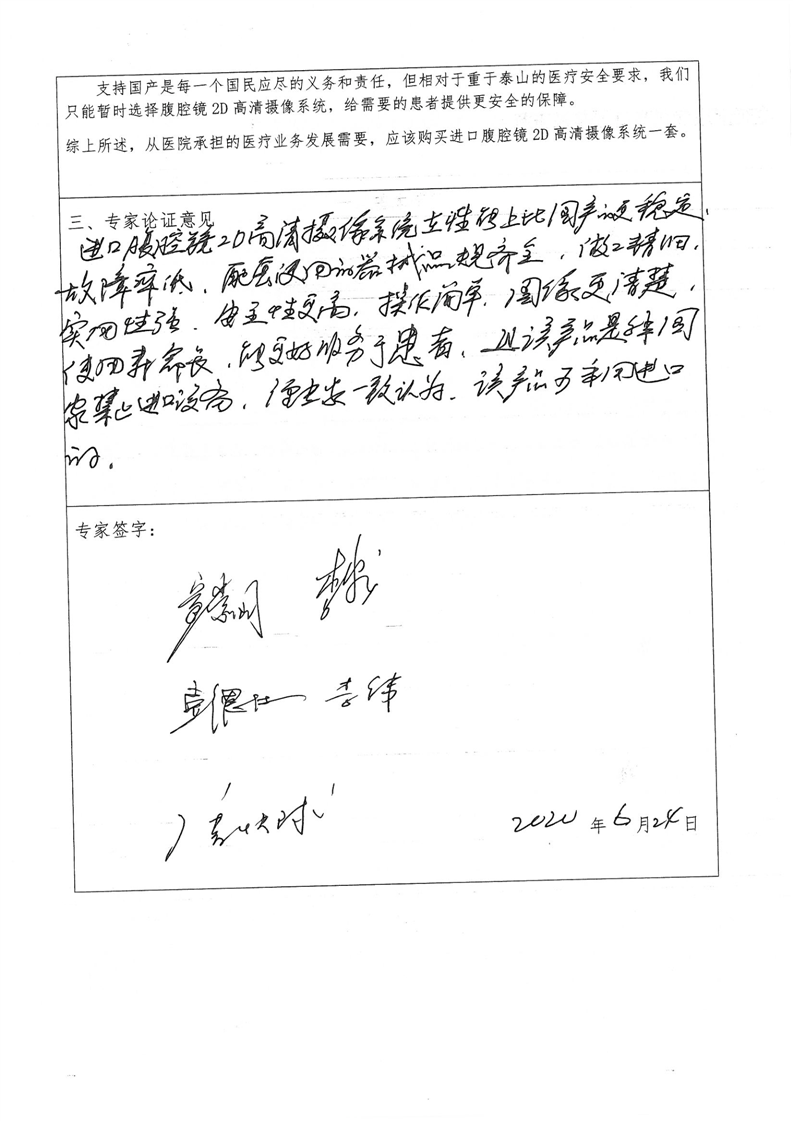 支持国产是每一个国民应尽的义务和责任，但相对于重于泰山的医疗安全要求，我们
只能暂时选择腹腔镜 2D 高清摄像系统，给需要的患者提供更安全的保障。
综上所述，从医院承担的医疗业务发展需要，应该购买进口腹腔镜 2D 高清摄像系统一套。
三、专家论证意见
进口腹腔镜2D高清摄像系统在性能上比国产的更稳定，
故障率低，配套使用的器械品规齐全，做工精细，
实用性强，安全性更高，操作简单，图像更清楚，
使用寿命长，能更好服务于患者，且该产品是非国
家禁止进口设备，专家一致认为，该产品可采用进口
的。
专家签字：
李纬
2020 年 6 月 24 日